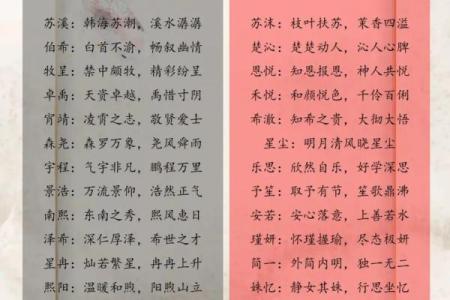 苏溪：韩海苏潮，溪水潺潺
伯希：白首不渝，畅叙幽情
牧呈：禁中颇牧，精彩纷呈
卓禹：天资卓越，禹惜寸阴
宵靖：凌霄之志，敬贤爱士
森尧：森罗万象，尧风舜雨
宇程：气宇非凡，鹏程万里
景浩：万流景仰，浩然正气
南熙：东南之秀，熙风惠日
泽希：深仁厚泽，希世之才
星冉：灿若繁星，冉冉上升
熙阳：温暖和煦，阳煦山立
苏沫：枝叶扶苏，茉香四溢
楚沁：楚楚动人，沁人心脾
恩悦：知恩报恩，神人共悦
禾悦：和颜悦色，千伶百俐
希澈：知希之贵，大彻大悟
星尘：明月清风晓星尘
乐思：欣然自乐，好学深思
予笙：取予有节，笙歌鼎沸
安若：安心落意，上善若水
瑾妍：怀瑾握瑜，尽态极妍
简一：外简内明，独一无二
姝忆：静女其姝，行思坐忆